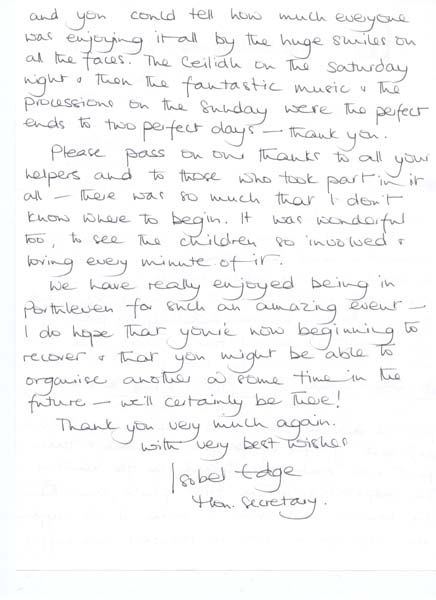 and you could tell how much everyone
was enjoying it all by the huge smiles on
all the faces. The Ceilidh on the Saturday
night & then the fantastic music & the
processions on the Sunday were the perfect
ends to two perfect days — thank you.
Please pass on our thanks to all your
helpers and to those who took part in it
all — there was so much that I don't
know where to begin. It was wonderful
too, to see the children so involved &
loving every minute of it.
We have really enjoyed being in
Porthleven for such an amazing event —
I do hope that you're now beginning to
recover & that you might be able to
organise another at some time in the
future — we'll certainly be there!
Thank you very much again.
with very best wishes
Isobel Edge
Hon. Secretary.